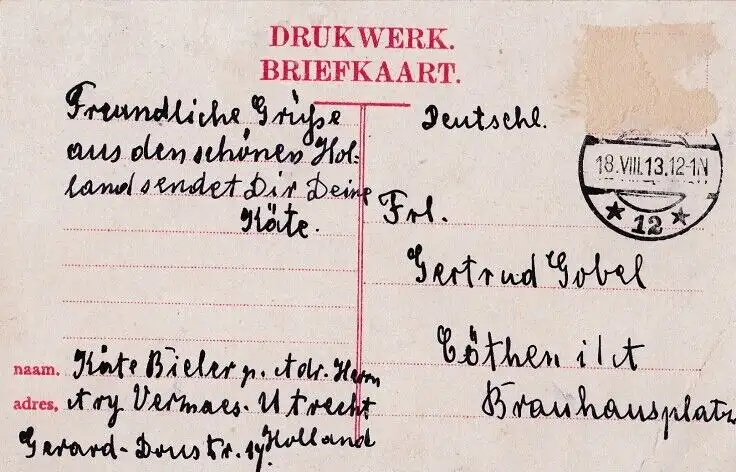 DRUKWERK.
BRIEFKAART.
Freundliche Grüße
aus den schönen Hol-
land sendet Dir Deine
Käte.
Deutschl.
18.VIII.13.12-1N
12
Frl.
Gertrud Gobel
Cöthen i/A
Brauhausplatz
naam. Käte Bieler p. Adr. Herrn
adres, Ary Vermaes. Utrecht
Gerard-Doustr. Holland